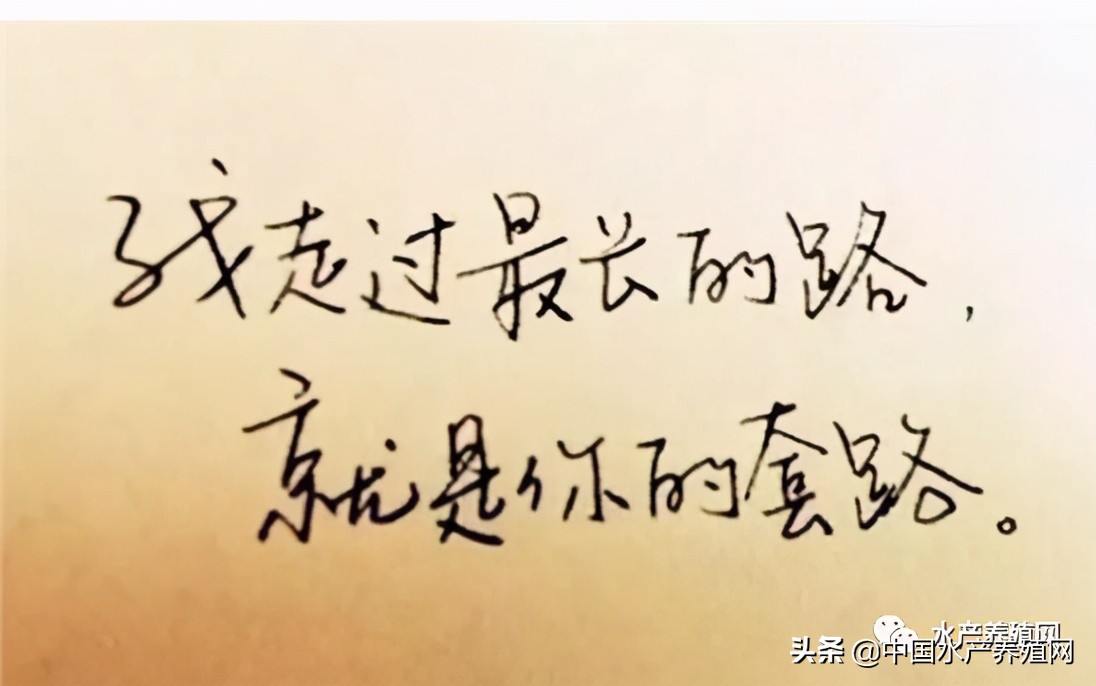 我走过最长的路,
就是你的套路。
水产养殖网
头条 @中国水产养殖网